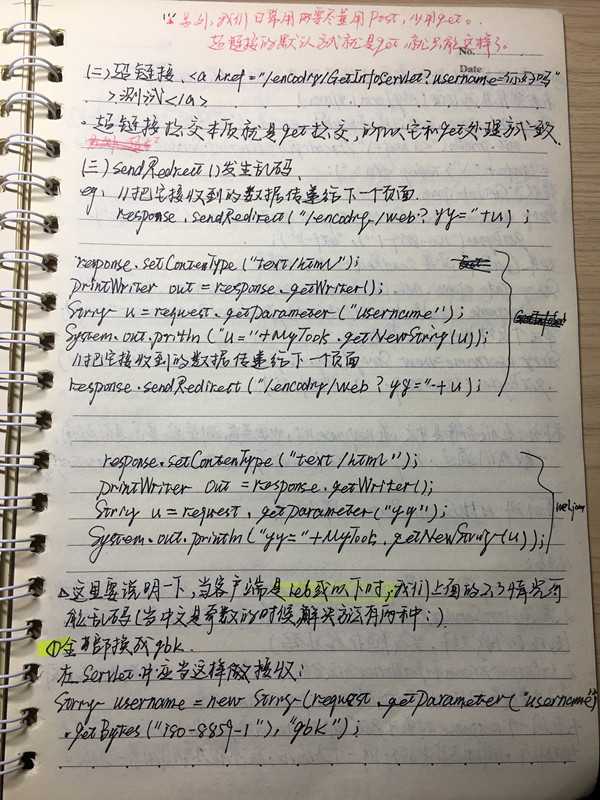 总则,我们日常用的要尽量用Post,少用get。
超链接的默认方式就是get,就只能这样了。
No.
Date
(二)超链接. <a href="/encoding/GetInfoServlet?username=你好吗"
>测试</a>
·超链接提交本质就是get提交,所以它和get处理方式一致.
(三)sendRedirect()发生乱码.
eg, //把它接收到的数据传递给下一个页面.
response.sendRedirect("/encoding/web?yy="+u);
response.setContenType("text/html");
PrintWriter out = response.getWriter();
String u = request.getParameter("username");
System.out.println("u="+MyTools.getNewString(u));
//把它接收到的数据传递给下一个页面
response.sendRedirect("/encoding/web?yy="+u);
response.setContenType("text/html");
printWriter out = response.getWriter();
String u = request.getparameter("yy");
System.out.println("yy="+MyTools.getNewString(u));
△这里要说明一下,当客户端是ie6或以下时,我们上面的2.3情况可
能乱码(当中文是奇数的时候,解决方法有两种:)
①全部换成gbk.
在Servlet中应当这样做接收:
String username = new String(request.getParameter("username")
.getBytes("iso-8859-1"), "gbk");